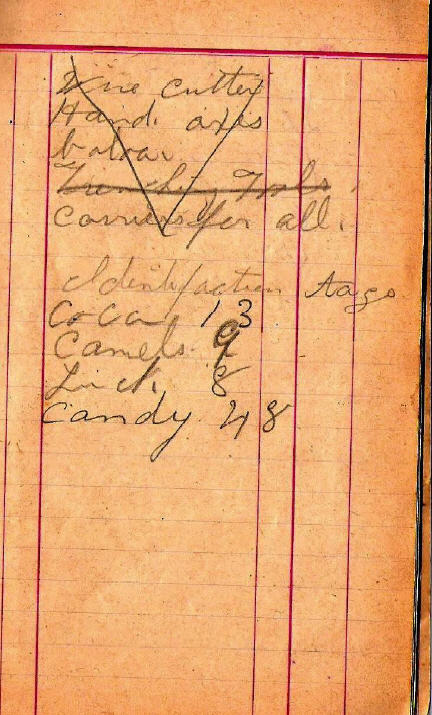 Wire cutter
Hand axes
bolos.
Trenching Tools
Carriers for all.
Identifaction tags
CoCa 13
Camels. 9
Luck. 8
Candy 48